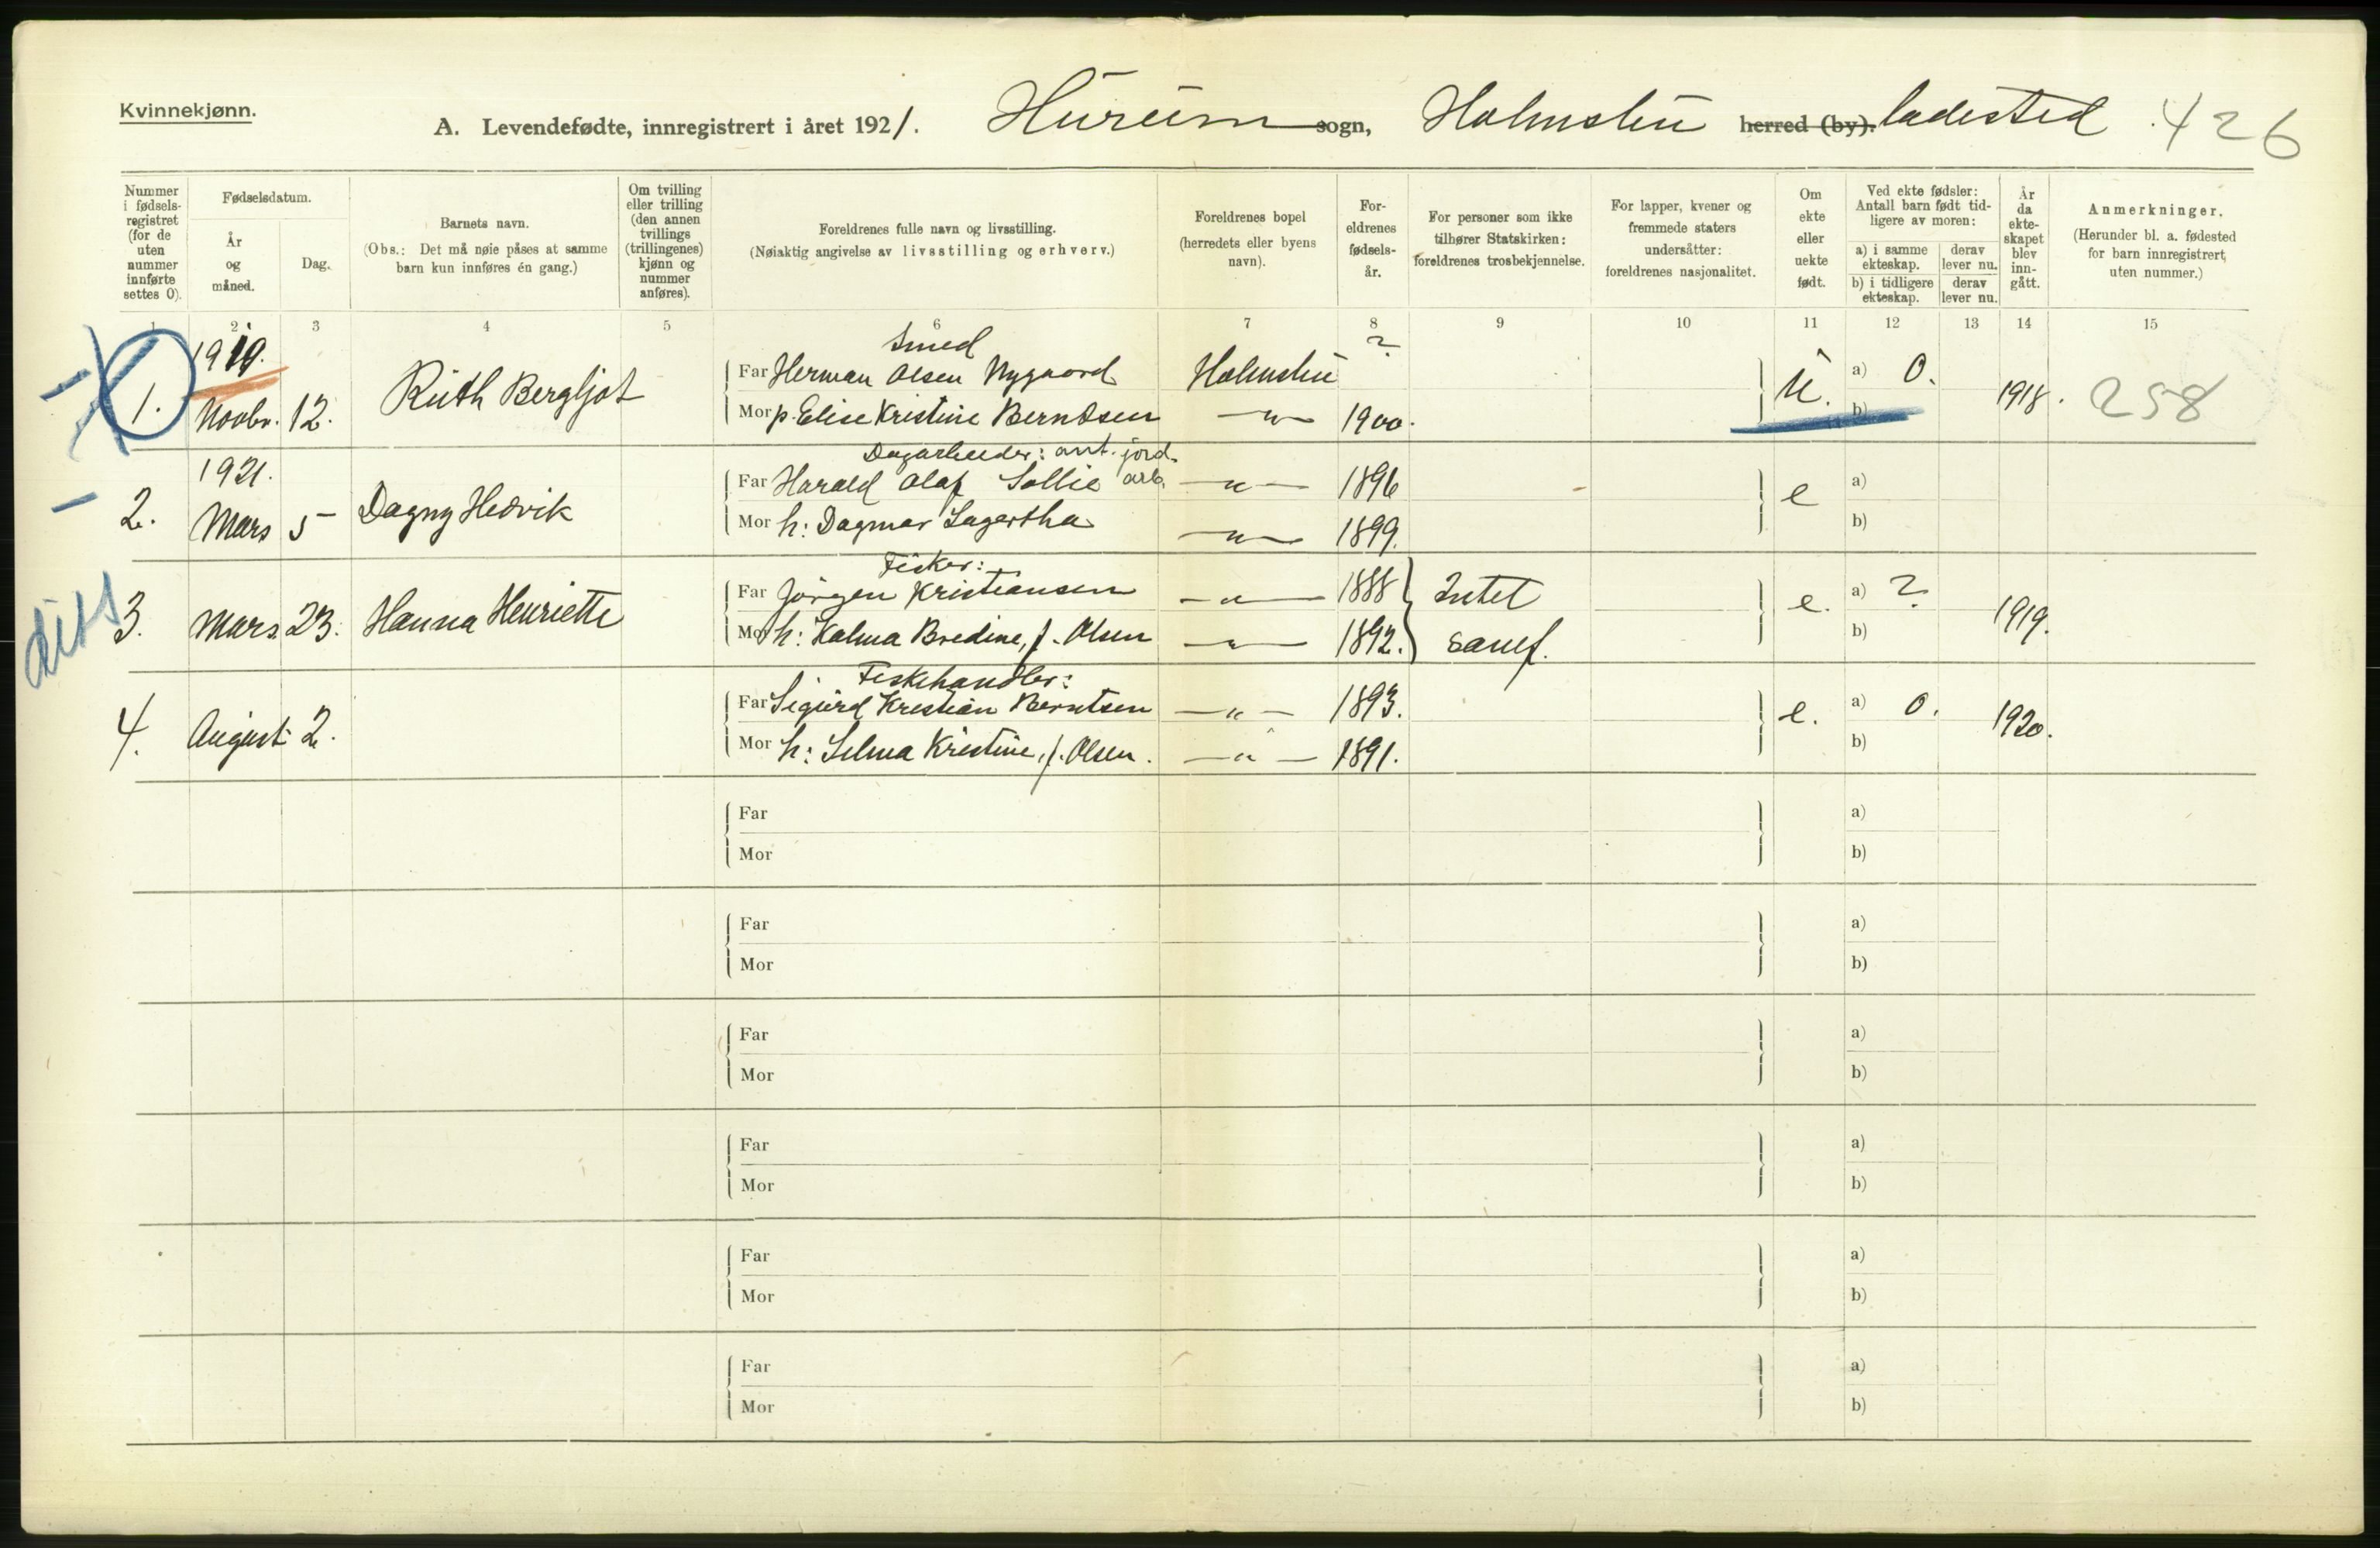 Kvinnekjønn.
A. Levendefødte, innregistrert i året 1921. Hurum sogn, Holmsbu herred (by). ladested 426
Nummer i fødsels-registret (for de uten nummer innførte settes 0).
Fødselsdatum.
År og måned.
Dag.
Barnets navn.
(Obs.: Det må nøie påses at samme barn kun innføres én gang.)
Om tvilling eller trilling (den annen tvillings (trillingenes) kjønn og nummer anføres).
Foreldrenes fulle navn og livsstilling.
(Nøiaktig angivelse av livsstilling og erhverv.)
Foreldrenes bopel (herredets eller byens navn).
For-eldrenes fødsels-år.
For personer som ikke tilhører Statskirken: foreldrenes trosbekjennelse.
For lapper, kvener og fremmede staters undersåtter: foreldrenes nasjonalitet.
Om ekte eller uekte født.
Ved ekte fødsler: Antall barn født tid-ligere av moren:
a) i samme ekteskap. derav lever nu.
b) i tidligere ekteskap. derav lever nu.
År da ekte-skapet blev inn-gått.
Anmerkninger.
(Herunder bl. a. fødested for barn innregistrert uten nummer.)
1 2 3 4 5 6 7 8 9 10 11 12 13 14 15
1919. Smed ?
1. Novbr. 12. Ruth Bergljot Far Herman Olsen Nygaard Holmsbu u. a) 0. 1918. 258
Mor p. Elise Kristine Berntsen —"— 1900. b)
1921. Dagarbeider: ant. jord-arb.
2. Mars 5 Dagny Hedvik Far Harald Olaf Sollie —"— 1896 e a)
Mor h: Dagmar Lagertha —"— 1899. b)
Fisker:
3. Mars 23. Hanna Henriette Far Jörgen Kristiansen —"— 1888 Intet e. a) ? 1919.
Mor h: Kalma Bredine, f. Olsen —"— 1892. samf. b)
Fiskehandler:
4. August 2. Far Sigurd Kristian Berntsen —"— 1893. e. a) 0. 1920.
Mor h: Selma Kristine, f. Olsen. —"— 1891. b)
Far a)
Mor b)
Far a)
Mor b)
Far a)
Mor b)
Far a)
Mor b)
Far a)
Mor b)
Far a)
Mor b)